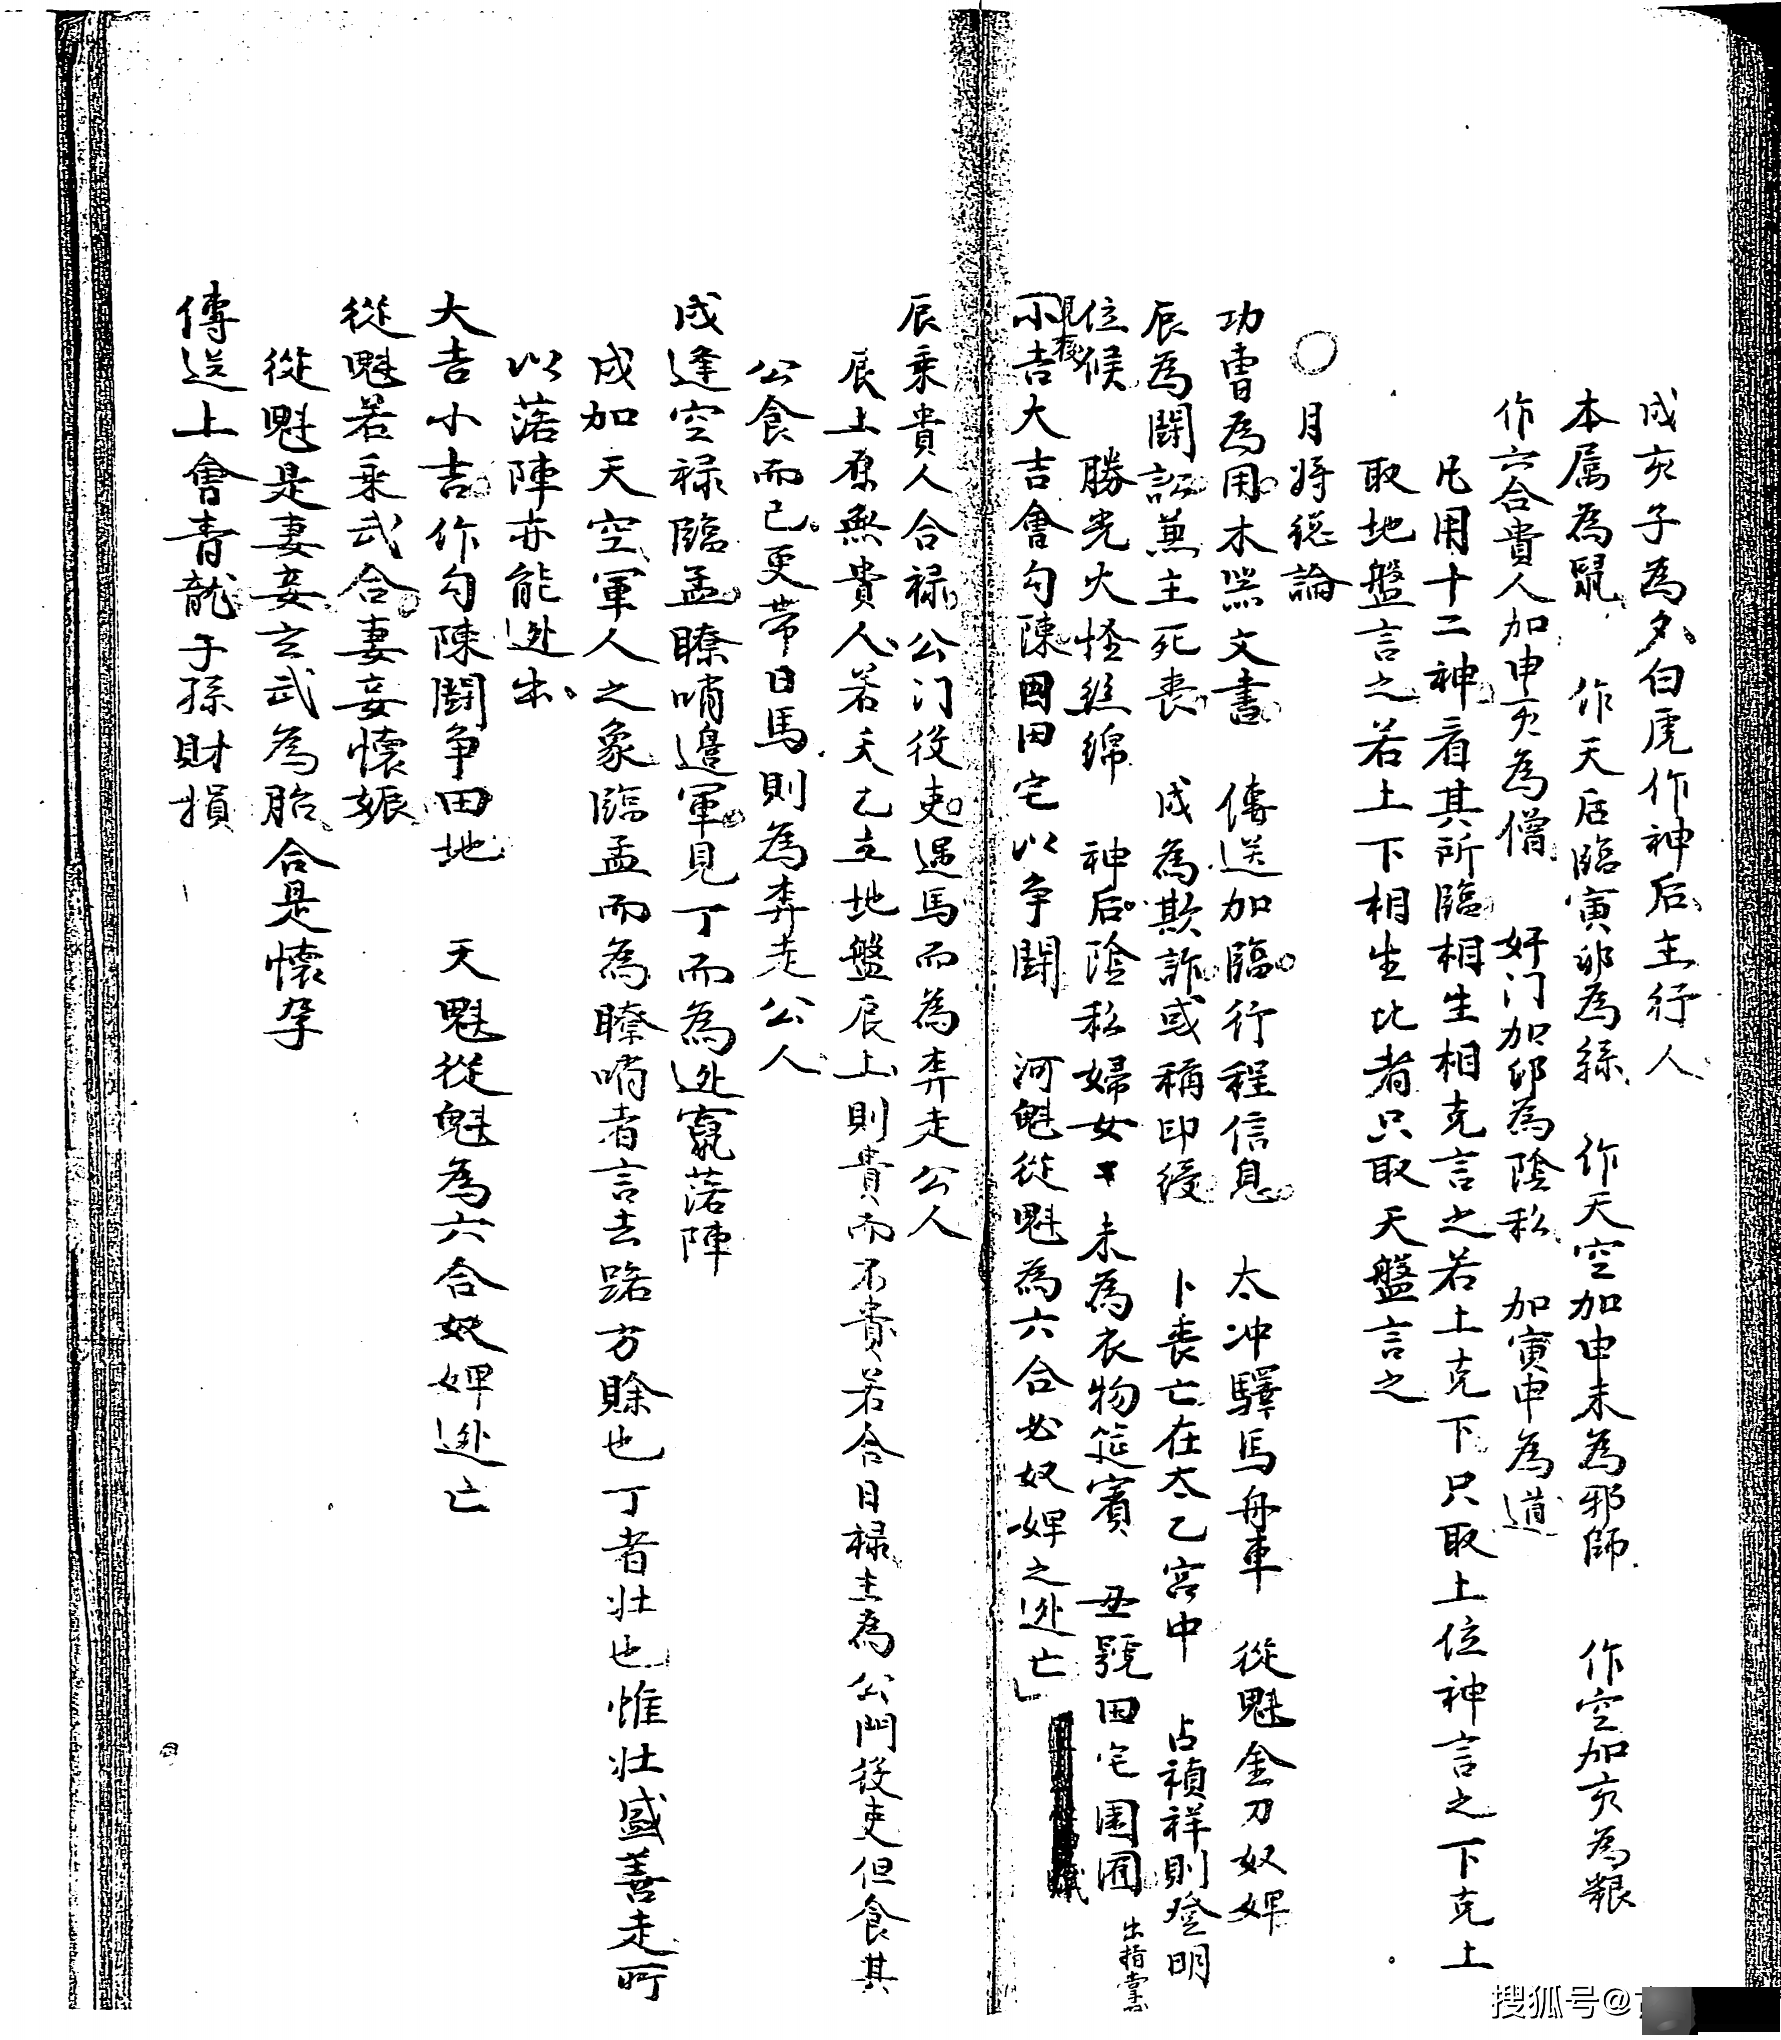 戌亥子為夕白虎作神后主行人
本属為鬚 作天后臨寅卯為絲 作天空加申未為邪師 作空加亥為
作六合貴人加申亥為僧 奸门加卯為陰私 加寅申為道
凡用十二神看其所臨相生相克言之若上克下只取上位神言之下克上
取地盤言之若上下相生比者只取天盤言之
○月将總論
功曹為用木器文書 傳送加臨行程信息 太冲驛馬舟車 從魁金刀奴婢
辰為鬪訟兼主死喪 戌為欺詐或稱印綬 卜喪亡在太乙宫中 占禎祥則登明
位候 勝光火怪絲綿 神后陰私婦女 未為衣物筵賓 丑號田宅園圃 出指掌
小吉大吉會勾陳因田宅以争鬪 河魁從魁為六合必奴婢之迯亡
辰乘貴人合禄公门役吏遇馬而為奔走公人
辰上原無貴人若天乙立地盤辰上則貴而不貴若合日禄主為公門役吏但食其
公食而已更帶日馬則為奔走公人
戌逢空禄臨孟瞭哨邊軍見丁而為迯竄落陣
戌加天空軍人之象臨孟而為瞭哨者言去路方賒也丁者壯也惟壯盛善走所
以落陣亦能迯出
大吉小吉作勾陳鬪争田地 天魁從魁為六合奴婢迯亡
從魁若乘武合妻妾懷娠
從魁是妻妾玄武為胎合是懷孕
傳送上會青龍子孫財損
搜狐号@